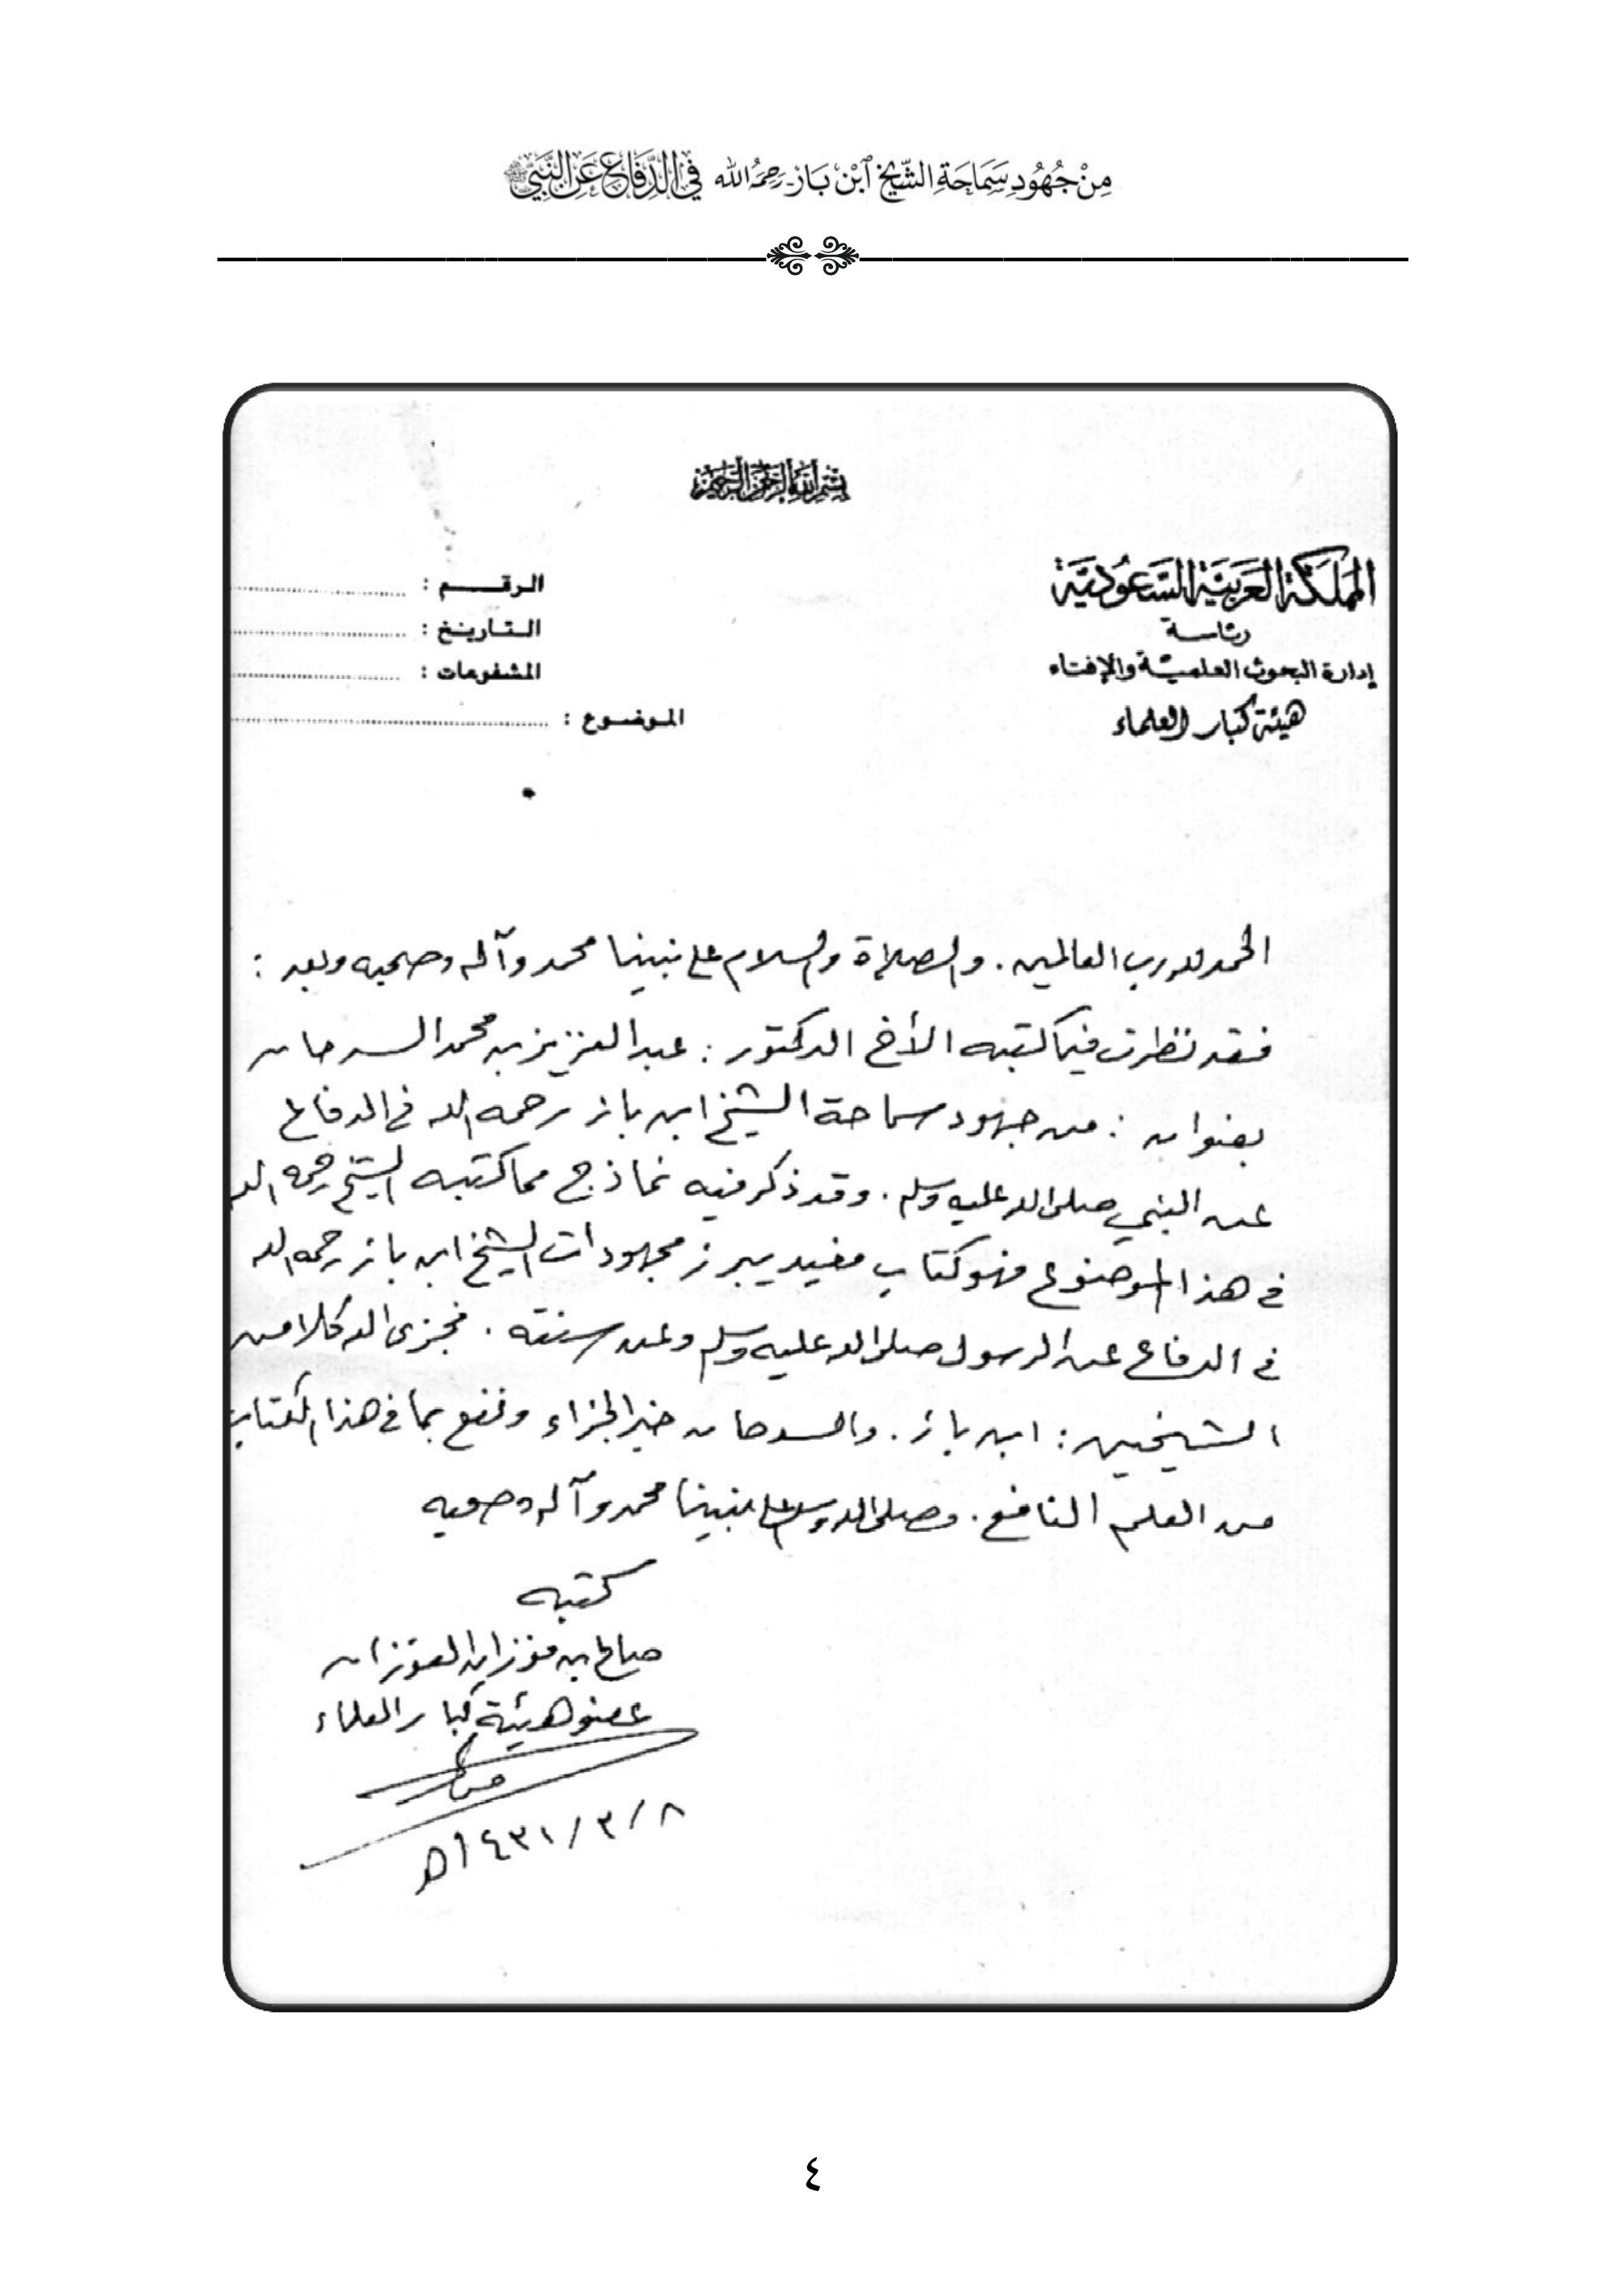 مِنْ جُهُودِ سَمَاحَةِ الشَّيْخِ ٱبْنِ بَاز رَحِمَهُ الله فِي الدِّفَاعِ عَنِ النَّبِيِّ ﷺ
بسم الله الرحمن الرحيم
المملكة العربية السعودية
رئاسة
إدارة البحوث العلمية والإفتاء
هيئة كبار العلماء
الرقم :
التاريخ :
المشفوعات :
الموضوع :
الحمد لله رب العالمين . والصلاة والسلام على نبينا محمد وآله وصحبه وبعد :
فقد نظرت فيما كتبه الأخ الدكتور : عبد العزيز بن محمد السدحان
بعنوان : من جهود سماحة الشيخ ابن باز رحمه الله في الدفاع
عن النبي صلى الله عليه وسلم . وقد ذكر فيه نماذج مما كتبه الشيخ رحمه الله
في هذا الموضوع فهو كتاب مفيد يبرز مجهودات الشيخ ابن باز رحمه الله
في الدفاع عن الرسول صلى الله عليه وسلم وعن سنته . فجزى الله كلا من
الشيخين : ابن باز . والسدحان خير الجزاء ونفع بما في هذا الكتاب
من العلم النافع . وصلى الله وسلم على نبينا محمد وآله وصحبه
كتبه
صالح بن فوزان الفوزان
عضو هيئة كبار العلماء
٨ / ٣ / ١٤٣١هـ
٤